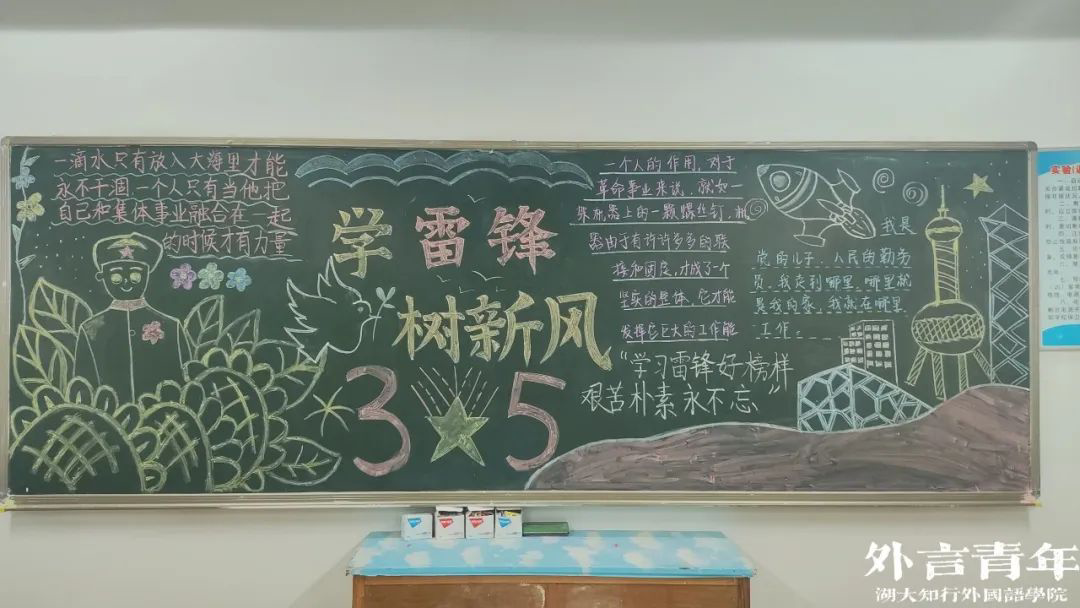 一滴水只有放入大海里才能
永不干涸一个人只有当他把
自己和集体事业融合在一起
的时候才有力量
学雷锋
树新风
3 5
一个人的作用,对于
革命事业来说,就如一
架机器上的一颗螺丝钉,机
器由于有许许多多的联
接和固定,才成了一个
坚实的整体,它才能
发挥它巨大的工作能
我是
党的儿子,人民的勤务
员,我走到哪里,哪里就
是我的家,我就在哪里
工作
“学习雷锋好榜样
艰苦朴素永不忘”
实验
外言青年
湖大知行外國語學院